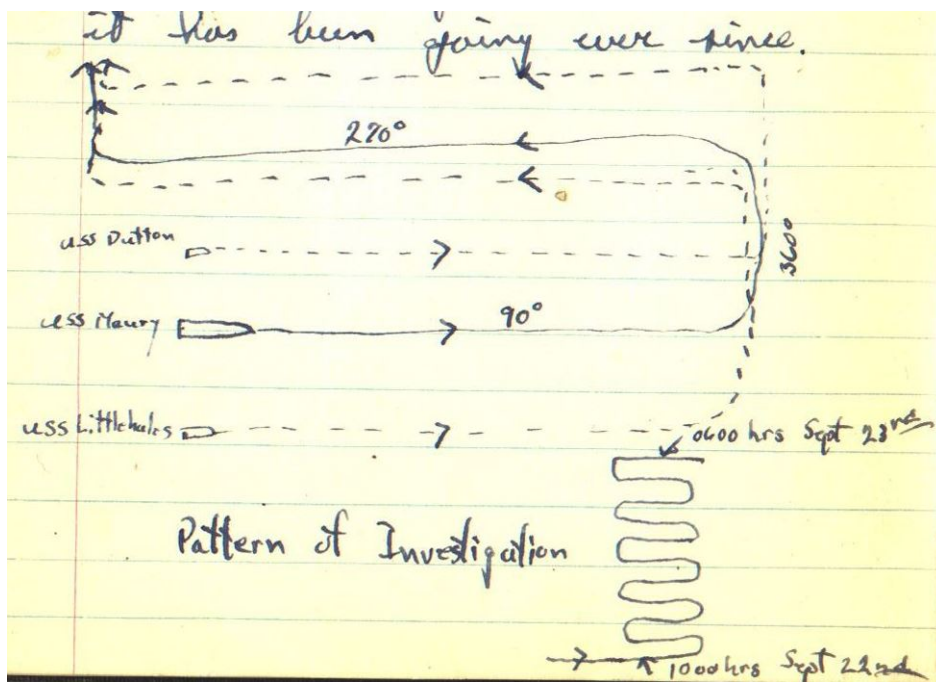 it has been going ever since.
270°
USS Dutton
360°
USS Maury
90°
USS Littlehales
0600 hrs Sept 23rd
Pattern of Investigation
1000 hrs Sept 22nd